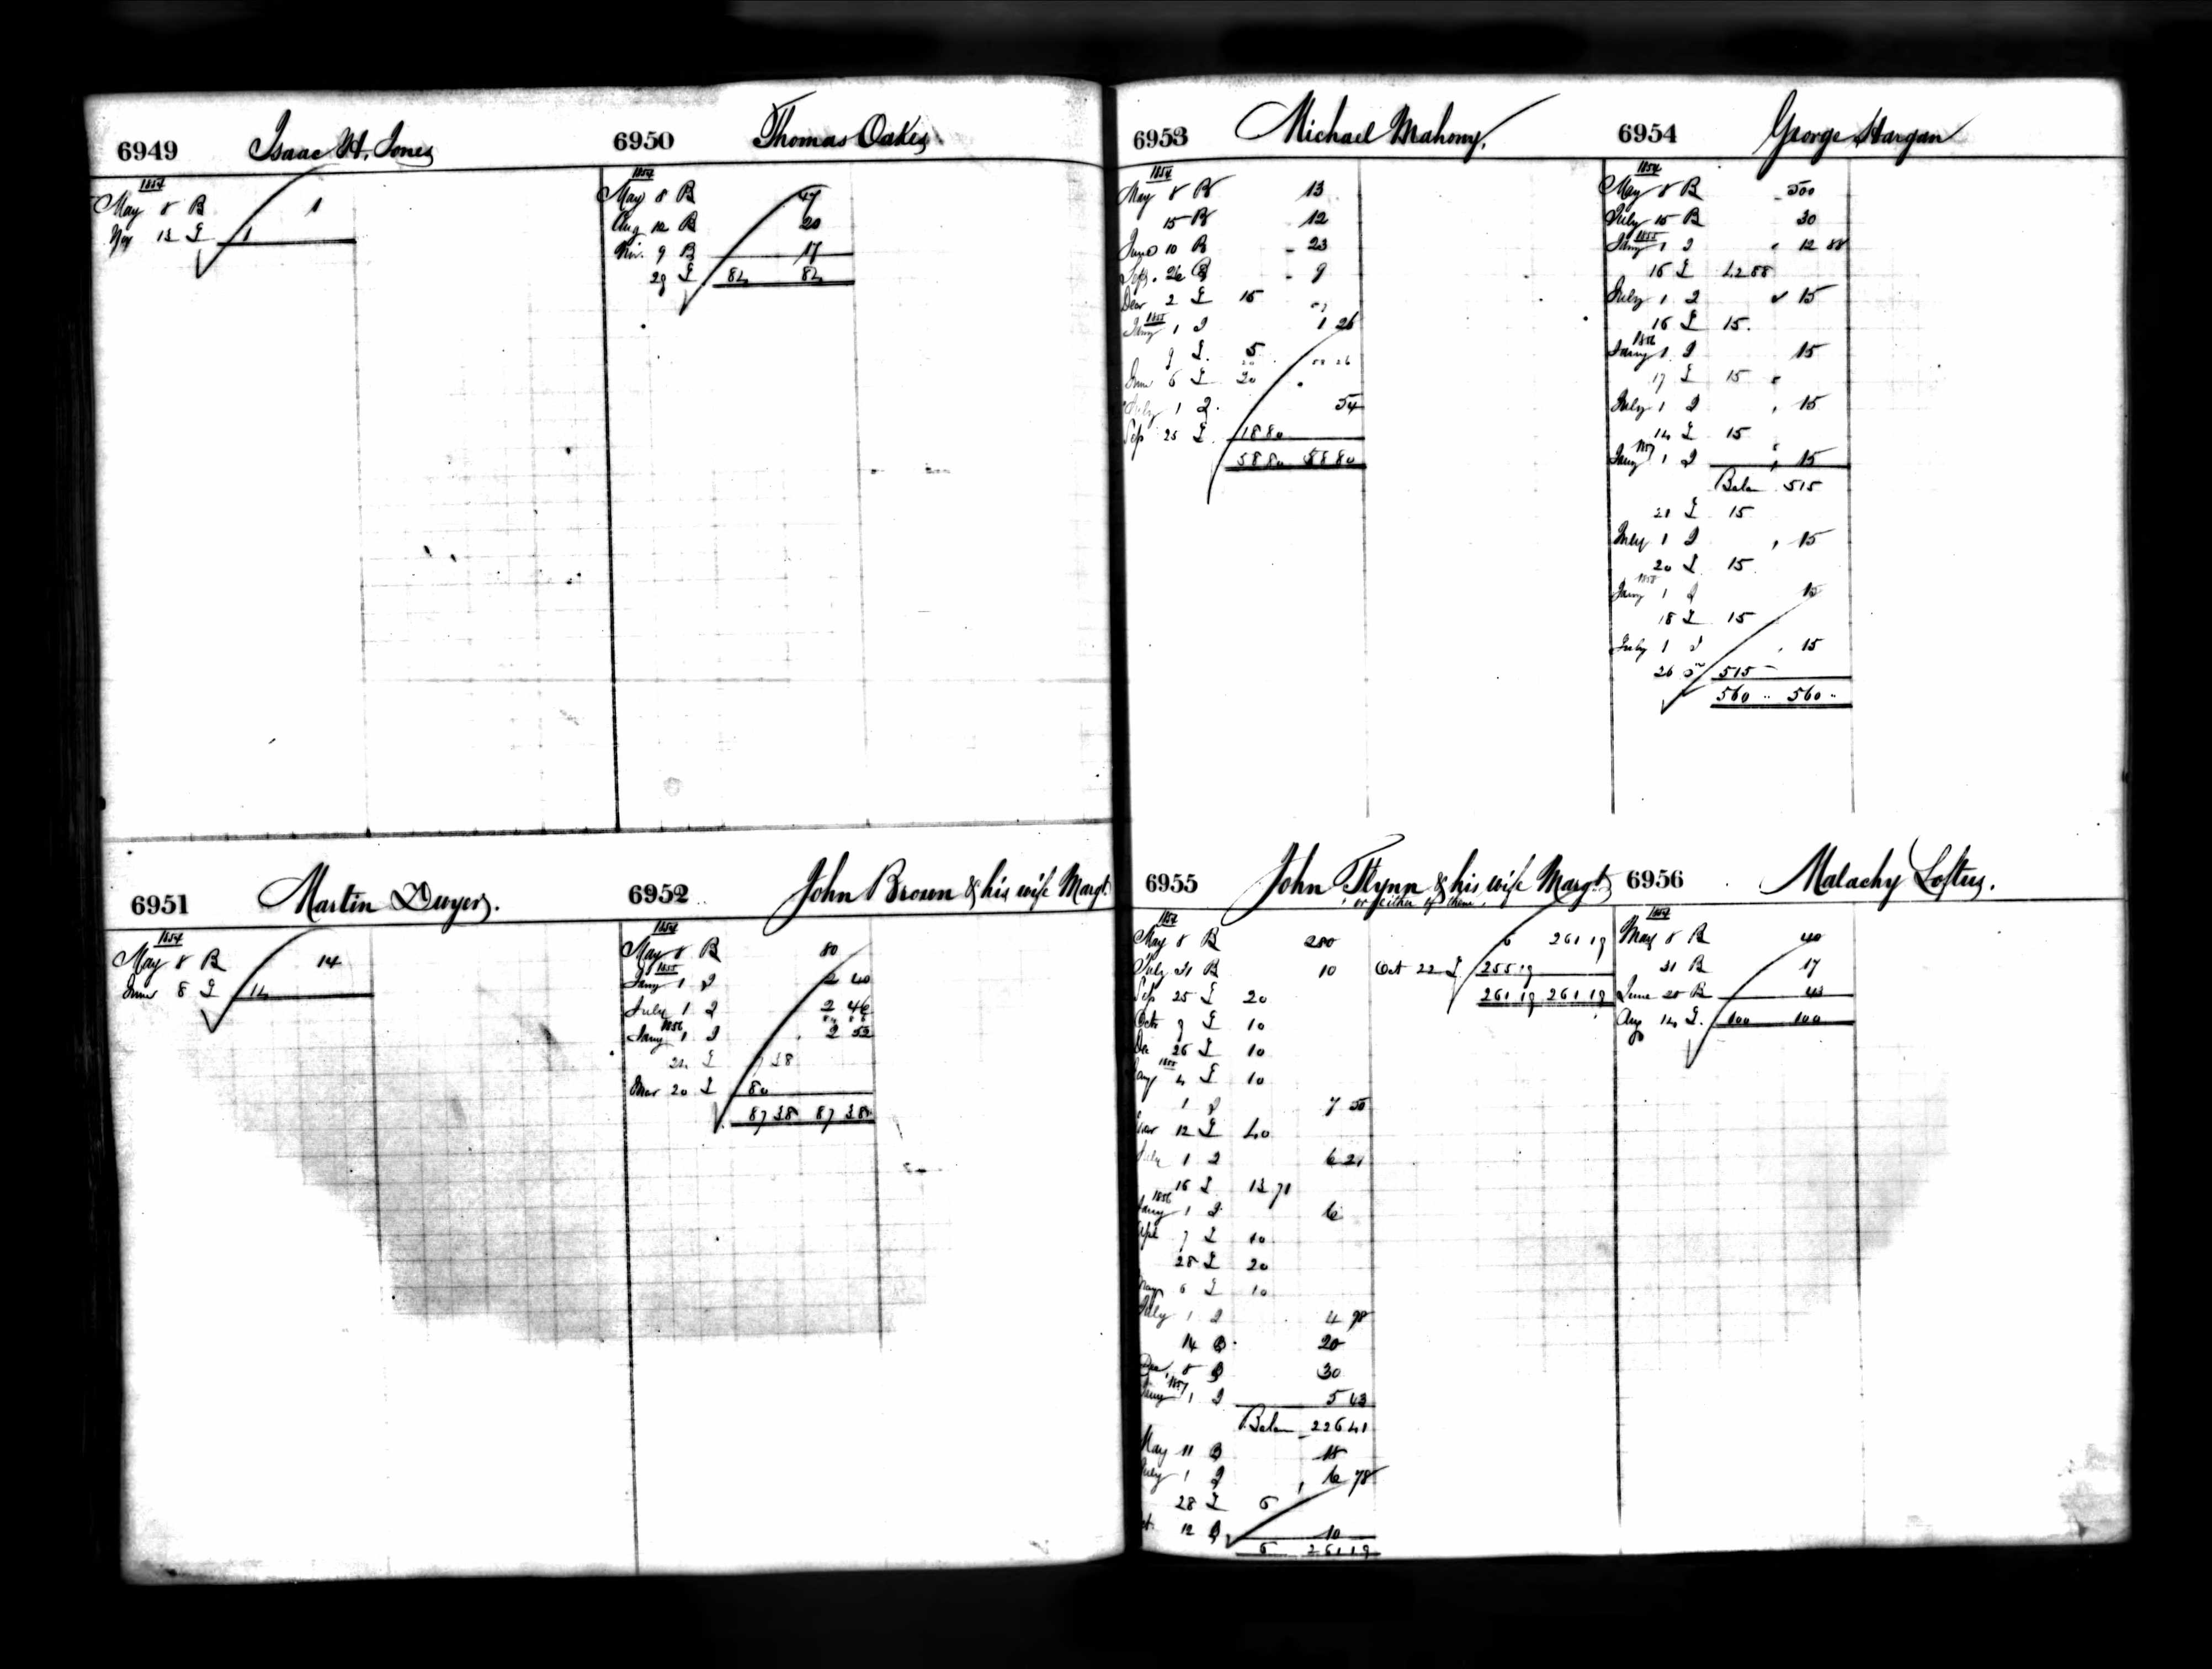 6949 Isaac H. Jones
1854
May 8 B 1
Nov 13 L 1
6950 Thomas Oakes
1854
May 8 B 47
Aug 12 B 20
Nov. 9 B 17
29 L 84 84
6951 Martin Dwyer.
1854
May 8 B 14
June 8 L 14
6952 John Brown & his wife Margt
1854
May 8 B 80
1855
Jany 1 I 2 40
July 1 I 2 46
1856
Jany 1 I 2 52
24 L 7 38
Mar 20 L 80
87 38 87 38
6953 Michael Mahony,
1854
May 8 B 13
15 B 12
June 10 B 23
Sep. 26 B 9
Decr 2 L 15
1855
Jany 1 I 1 26
9 L 5
June 6 L 20
July 1 I 54
Sep 25 L 18 80
58 80 58 80
6954 George Hargan
1854
May 8 B 500
July 15 B 30
1855
Jany 1 I 12 88
16 L 42 88
July 1 I 15
16 L 15
1856
Jany 1 I 15
17 L 15
July 1 I 15
14 L 15
1857
Jany 1 I 15
Balan 515
21 L 15
July 1 I 15
20 L 15
1858
Jany 1 I 15
18 L 15
July 1 I 15
26 515
560 560
6955 John Flynn & his wife Margt
or either of them.
1854
May 8 B 280
July 31 B 10
Sep 25 L 20
Octr 9 L 10
De 26 L 10
1855
Jany 4 L 10
1 I 7 50
Mar 12 L 40
July 1 I 6 21
16 L 13 71
1856
Jany 1 I 6
Apl 7 L 10
28 L 20
May 6 L 10
July 1 I 4 98
14 B 20
Dec, 8 B 30
1857
Jany 1 I 5 43
Balan 226 41
May 11 B 18
July 1 I 6 78
28 L 6
Oct 12 B 10
6 261 19
6 261 19
Oct 22 L 255 19
261 19 261 19
6956 Malachy Loftus.
1854
May 8 B 40
31 B 17
June 20 B 43
Aug 14 L 100 100